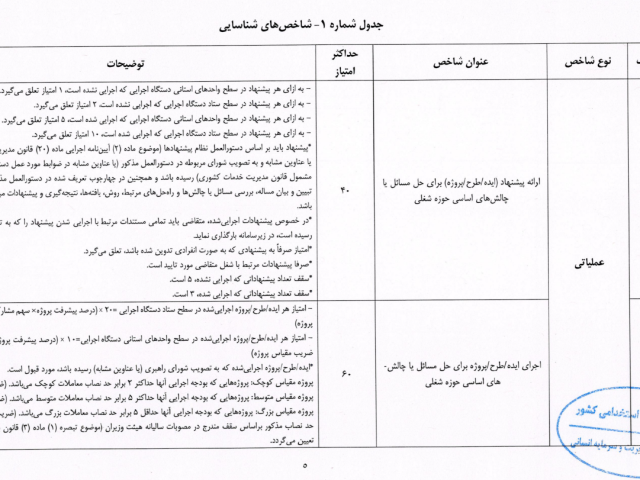 جدول شماره ۱- شاخص‌های شناسایی
نوع شاخص
عنوان شاخص
حداکثر
امتیاز
توضیحات
عملیاتی
ارائه پیشنهاد (ایده/طرح/پروژه) برای حل مسائل یا
چالش‌های اساسی حوزه شغلی
۴۰
- به ازای هر پیشنهاد در سطح واحدهای استانی دستگاه اجرایی که اجرایی نشده است، ۱ امتیاز تعلق می‌گیرد.
- به ازای هر پیشنهاد در سطح ستاد دستگاه اجرایی که اجرایی نشده است، ۲ امتیاز تعلق می‌گیرد.
- به ازای هر پیشنهاد در سطح واحدهای استانی دستگاه اجرایی که اجرایی شده است، ۵ امتیاز تعلق می‌گیرد.
- به ازای هر پیشنهاد در سطح ستاد دستگاه اجرایی که اجرایی شده است، ۱۰ امتیاز تعلق می‌گیرد.
*پیشنهاد باید بر اساس دستورالعمل نظام پیشنهادها (موضوع ماده (۲) آیین‌نامه اجرایی ماده (۲۰) قانون
یا عناوین مشابه و به تصویب شورای مربوطه در دستورالعمل مذکور (یا عناوین مشابه در ضوابط مورد عمل
مشمول قانون مدیریت خدمات کشوری) رسیده باشد و همچنین در چهارچوب تعریف شده در دستورالعمل
تبیین و بیان مساله، بررسی مسائل یا چالش‌ها و راه‌حل‌های مرتبط، روش، یافته‌ها، نتیجه‌گیری و پیشنهادات
باشد.
*در خصوص پیشنهادات اجرایی‌شده، متقاضی باید تمامی مستندات مرتبط با اجرایی شدن پیشنهاد را که به
رسیده است، در زیرسامانه بارگذاری نماید.
*امتیاز صرفاً به پیشنهادی که به صورت انفرادی تدوین شده باشد، تعلق می‌گیرد.
*صرفا پیشنهادات مرتبط با شغل متقاضی مورد تایید است.
*سقف تعداد پیشنهاداتی که اجرایی نشده، ۵ است.
*سقف تعداد پیشنهاداتی که اجرایی شده، ۳ است.
اجرای ایده/طرح/پروژه برای حل مسائل یا چالش-
های اساسی حوزه شغلی
۶۰
- امتیاز هر ایده/طرح/پروژه اجرایی‌شده در سطح ستاد دستگاه اجرایی =۲۰ × (درصد پیشرفت پروژه× سهم
پروژه)
- امتیاز هر ایده/طرح/پروژه اجرایی‌شده در سطح واحدهای استانی دستگاه اجرایی=۱۰ × (درصد پیشرفت
ضریب مقیاس پروژه)
*ایده/طرح/پروژه اجرایی‌شده که به تصویب شورای راهبری (یا عناوین مشابه) رسیده باشد، مورد قبول است.
پروژه مقیاس کوچک: پروژه‌هایی که بودجه اجرایی آنها حداکثر ۲ برابر حد نصاب معاملات کوچک می‌باشد.
پروژه مقیاس متوسط: پروژه‌هایی که بودجه اجرایی آنها حداکثر ۵ برابر حد نصاب معاملات متوسط می‌باشد.
پروژه مقیاس بزرگ: پروژه‌هایی که بودجه اجرایی آنها حداقل ۵ برابر حد نصاب معاملات بزرگ می‌باشد.
حد نصاب مذکور براساس سقف مندرج در مصوبات سالیانه هیئت وزیران (موضوع تبصره (۱) ماده (۳) قانون
تعیین می‌گردد.
استخدامی کشور
و سرمایه انسانی
۵